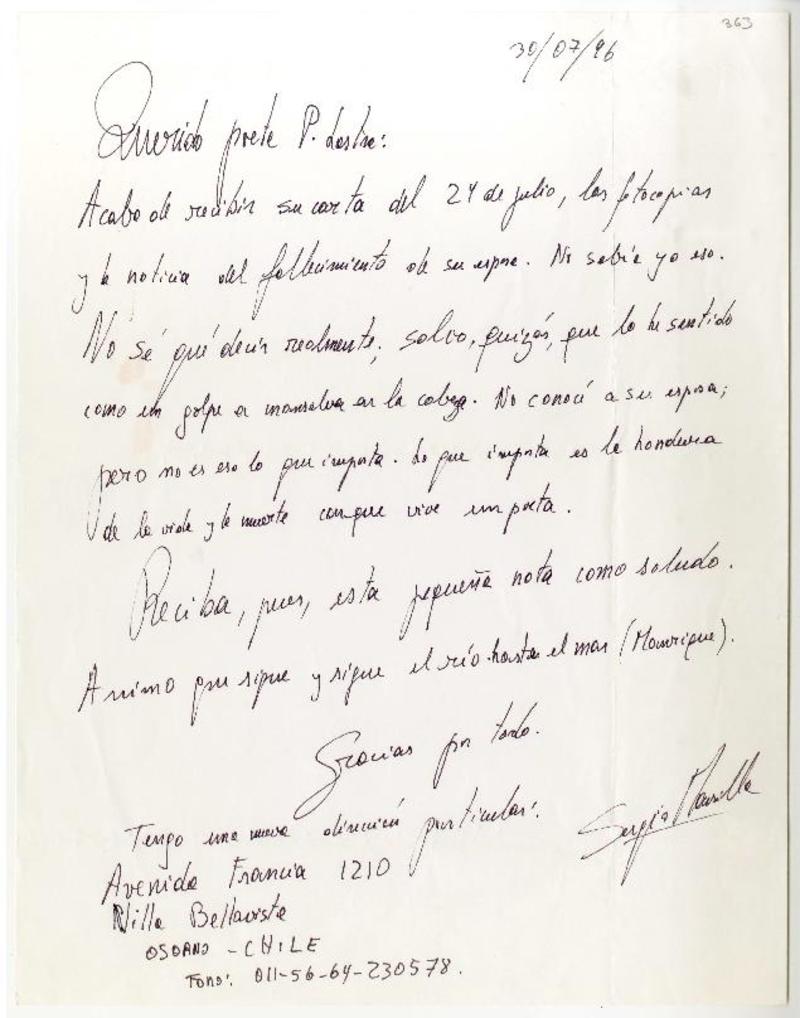 363
30/07/96
Querido poeta P. Lastra:
Acabo de recibir su carta del 24 de julio, las fotocopias
y la noticia del fallecimiento de su esposa. No sabía yo eso.
No sé qué decir realmente; salvo, quizás, que lo he sentido
como un golpe a mansalva en la cabeza. No conocí a su esposa;
pero no es eso lo que importa. Lo que importa es la hondura
de la vida y la muerte conque vive un poeta.
Reciba, pues, esta pequeña nota como saludo.
Animo que sigue y sigue el río hasta el mar (Manrique).
Gracias por todo.
Sergio Mansilla
Tengo una nueva dirección particular:
Avenida Francia 1210
Villa Bellavista
OSORNO - CHILE
Fono: 011-56-64-230578.